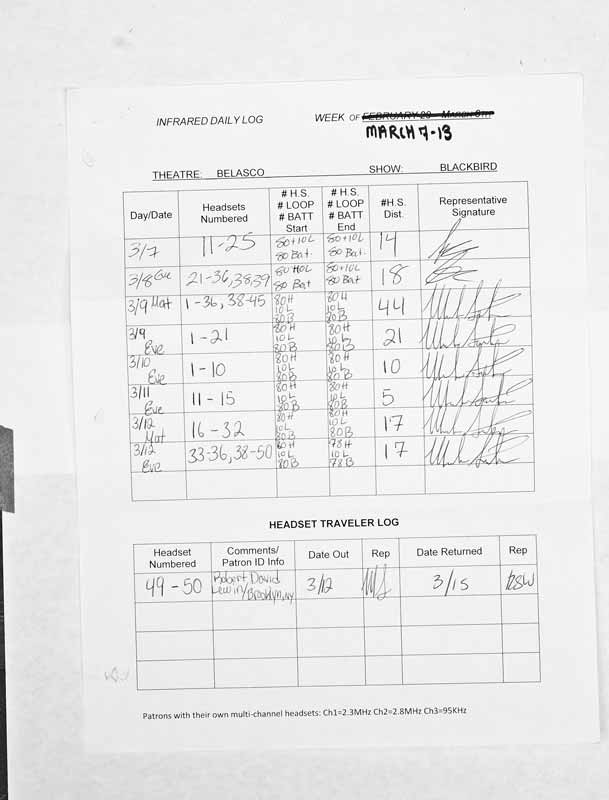 INFRARED DAILY LOG WEEK OF FEBRUARY 29 - MARCH 6TH
MARCH 7-13
THEATRE: BELASCO SHOW: BLACKBIRD
Day/Date Headsets Numbered # H.S. # LOOP # BATT Start # H.S. # LOOP # BATT End #H.S. Dist. Representative Signature
3/7 11-25 80+10L 80 Bat. 80+10L 80 Bat. 14
3/8 Eve 21-36,38,39 80+10L 80 Bat 80+10L 80 Bat 18
3/9 Mat 1-36, 38-45 80H 10L 80B 80H 10L 80B 44
3/9 Eve 1-21 80H 10L 80B 80H 10L 80B 21
3/10 Eve 1-10 80H 10L 80B 80H 10L 80B 10
3/11 Eve 11-15 80H 10L 80B 80H 10L 80B 5
3/12 Mat 16-32 80H 10L 80B 80H 10L 80B 17
3/12 Eve 33-36, 38-50 80H 10L 80B 78H 10L 78B 17
HEADSET TRAVELER LOG
Headset Numbered Comments/ Patron ID Info Date Out Rep Date Returned Rep
49-50 Robert David Lewin/Brooklyn, NY 3/12 3/15 RSW
Patrons with their own multi-channel headsets: Ch1=2.3MHz Ch2=2.8MHz Ch3=95KHz